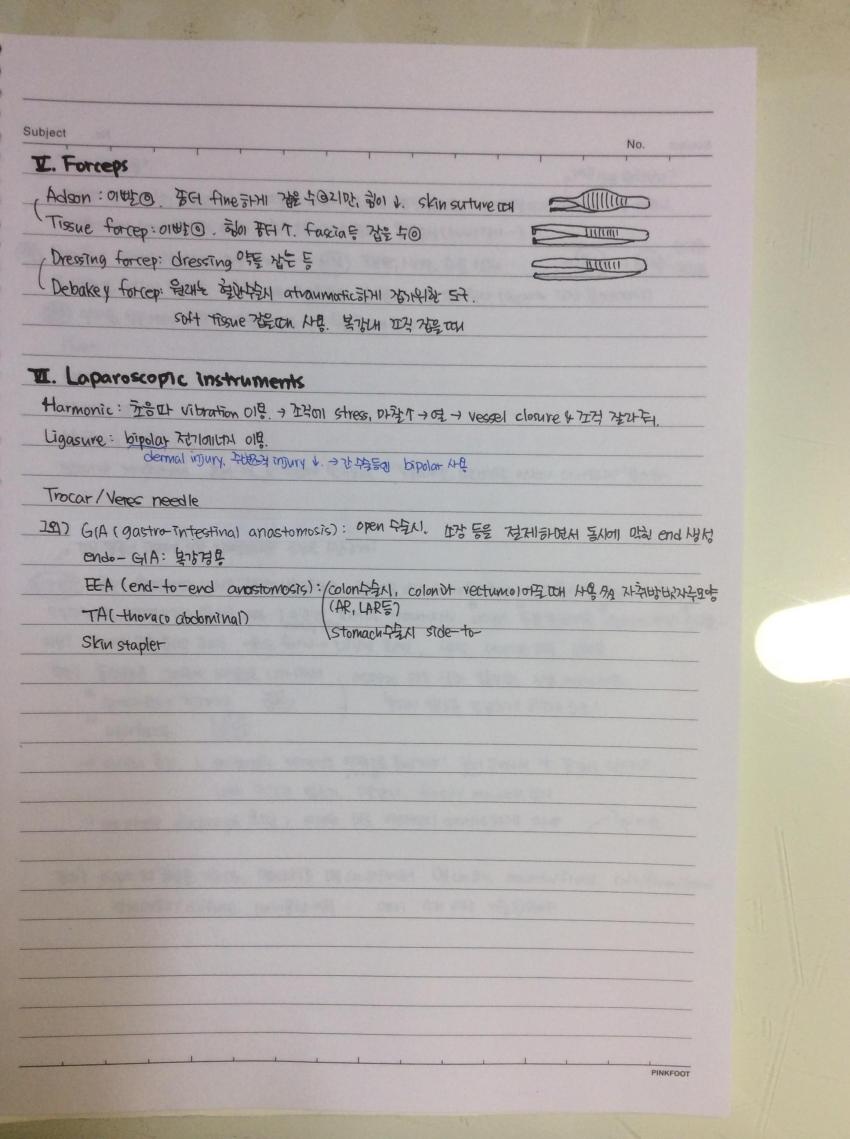 Subject
No.
Ⅴ. Forceps
Adson : 이빨⊕. 좀더 fine하게 잡을 수 있지만, 힘이 ↓. skin suture 때
Tissue forcep : 이빨⊕. 힘이 좀더 ↑. fascia등 잡을 수⊕
Dressing forcep : dressing 약들 잡는 등
Debakey forcep : 원래는 혈관수술시 atraumatic하게 잡기위한 도구.
soft tissue 잡을때 사용. 복강내 조직 잡을때
Ⅵ. Laparoscopic instruments
Harmonic : 초음파 vibration 이용. → 조직에 stress, 마찰↑ → 열 → vessel closure & 조직 잘라줘.
Ligasure : bipolar 전기에너지 이용.
dermal injury, 주변조직 injury ↓. → 간 수술등엔 bipolar 사용
Trocar / Veres needle
그외) GIA (gastro-intestinal anastomosis) : open 수술시. 소장 등을 절제하면서 동시에 막힌 end 생성
endo-GIA : 복강경용
EEA (end-to-end anastomosis) : colon수술시, colon과 rectum이어줄때 사용 자주모양
(AR, LAR등)
TA (-thoraco abdominal)
stomach수술시 side-to-
Skin stapler
PINKFOOT